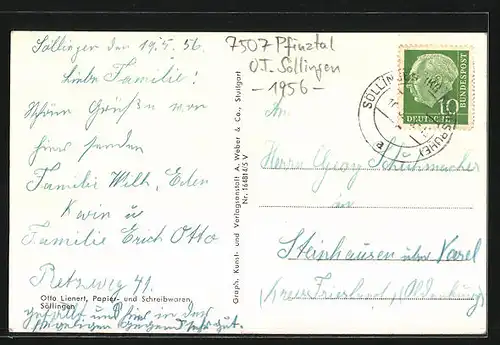 Söllingen den 19.5.56
Liebe Familie!
Schöne Grüße von
hier senden
Familie Wilh, Eden
Karin u
Familie Erich Otto
Retzweg 41.
Otto Lienert, Papier- und Schreibwaren,
Söllingen
gefällt uns hier in der
Gegend sehr gut.
Graph. Kunst- und Verlagsanstalt A. Weber & Co., Stuttgart
Nr. 164814/5 V
7507 Pfinztal
O.T. Söllingen
- 1956 -
10
DEUTSCHE
BUNDESPOST
SÖLLINGEN
KARLSRUHE
a
An
Herrn Georg Schuhmacher
in
Steinhausen über Varel
(Kreis Friesland) (Oldenburg)